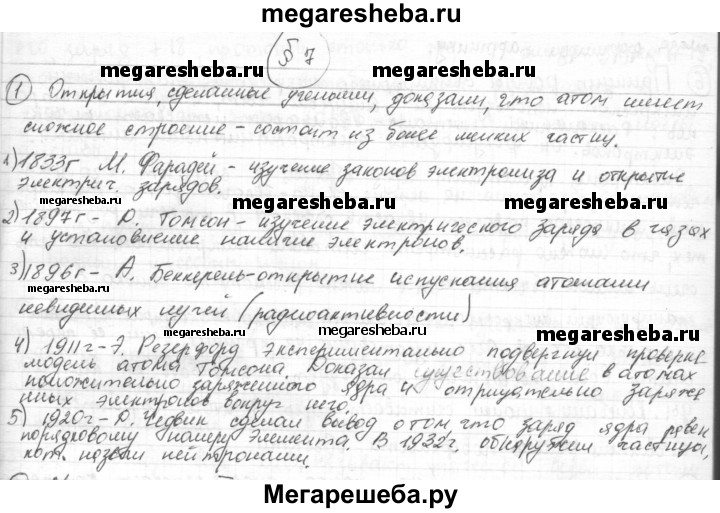 megaresheba.ru
§ 7
megaresheba.ru megaresheba.ru
1 Открытия, сделанные учеными, доказали, что атом имеет
сложное строение - состоит из более мелких частиц.
1) 1833г М. Фарадей - изучение законов электролиза и открытие
электрич. зарядов.
2) 1897г - Д. Томсон - изучение электрического заряда в газах
и установление наличие электронов.
3) 1896г - А. Беккерель - открытие испускания атомами
megaresheba.ru megaresheba.ru
невидимых лучей (радиоактивности)
megaresheba.ru megaresheba.ru
4) 1911г - Э. Резерфорд экспериментально подвергнул проверке
модель атома Томсона. Доказал существование в атомах
положительно заряженного ядра и отрицательно заряже
нных электронов вокруг него.
5) 1920г - Д. Чедвик сделал вывод о том, что заряд ядра равен
порядковому номеру элемента. В 1932г. обнаружили частицы,
кот. назвали нейтронами.
Мегарешеба.ру